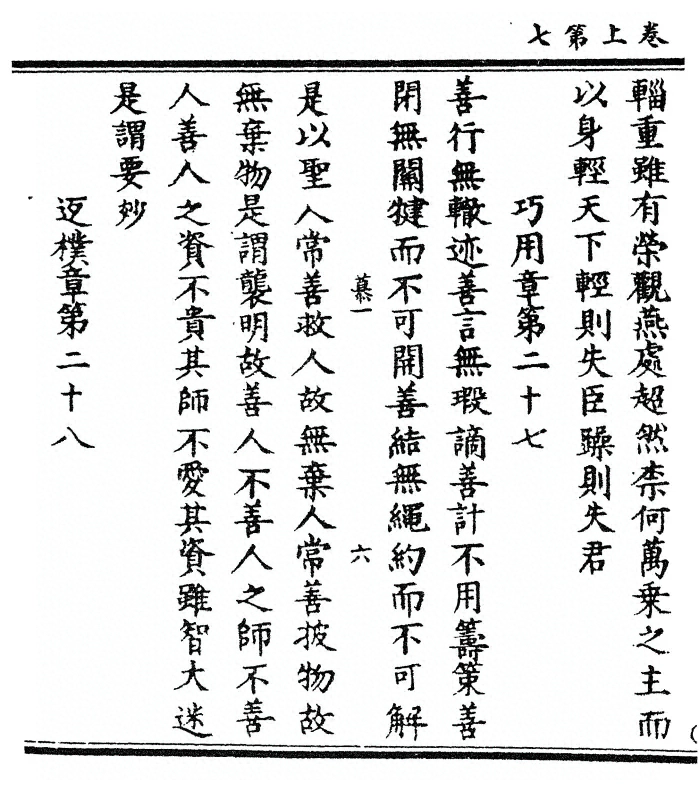 卷上第七
輜重雖有榮觀燕處超然柰何萬乗之主而
以身輕天下輕則失臣躁則失君
巧用章第二十七
善行無轍迹善言無瑕謫善計不用籌策善
閉無關犍而不可開善結無繩約而不可解
慕一
六
是以聖人常善救人故無棄人常善披物故
無棄物是謂襲明故善人不善人之師不善
人善人之資不貴其師不愛其資雖智大迷
是謂要玅
返樸章第二十八